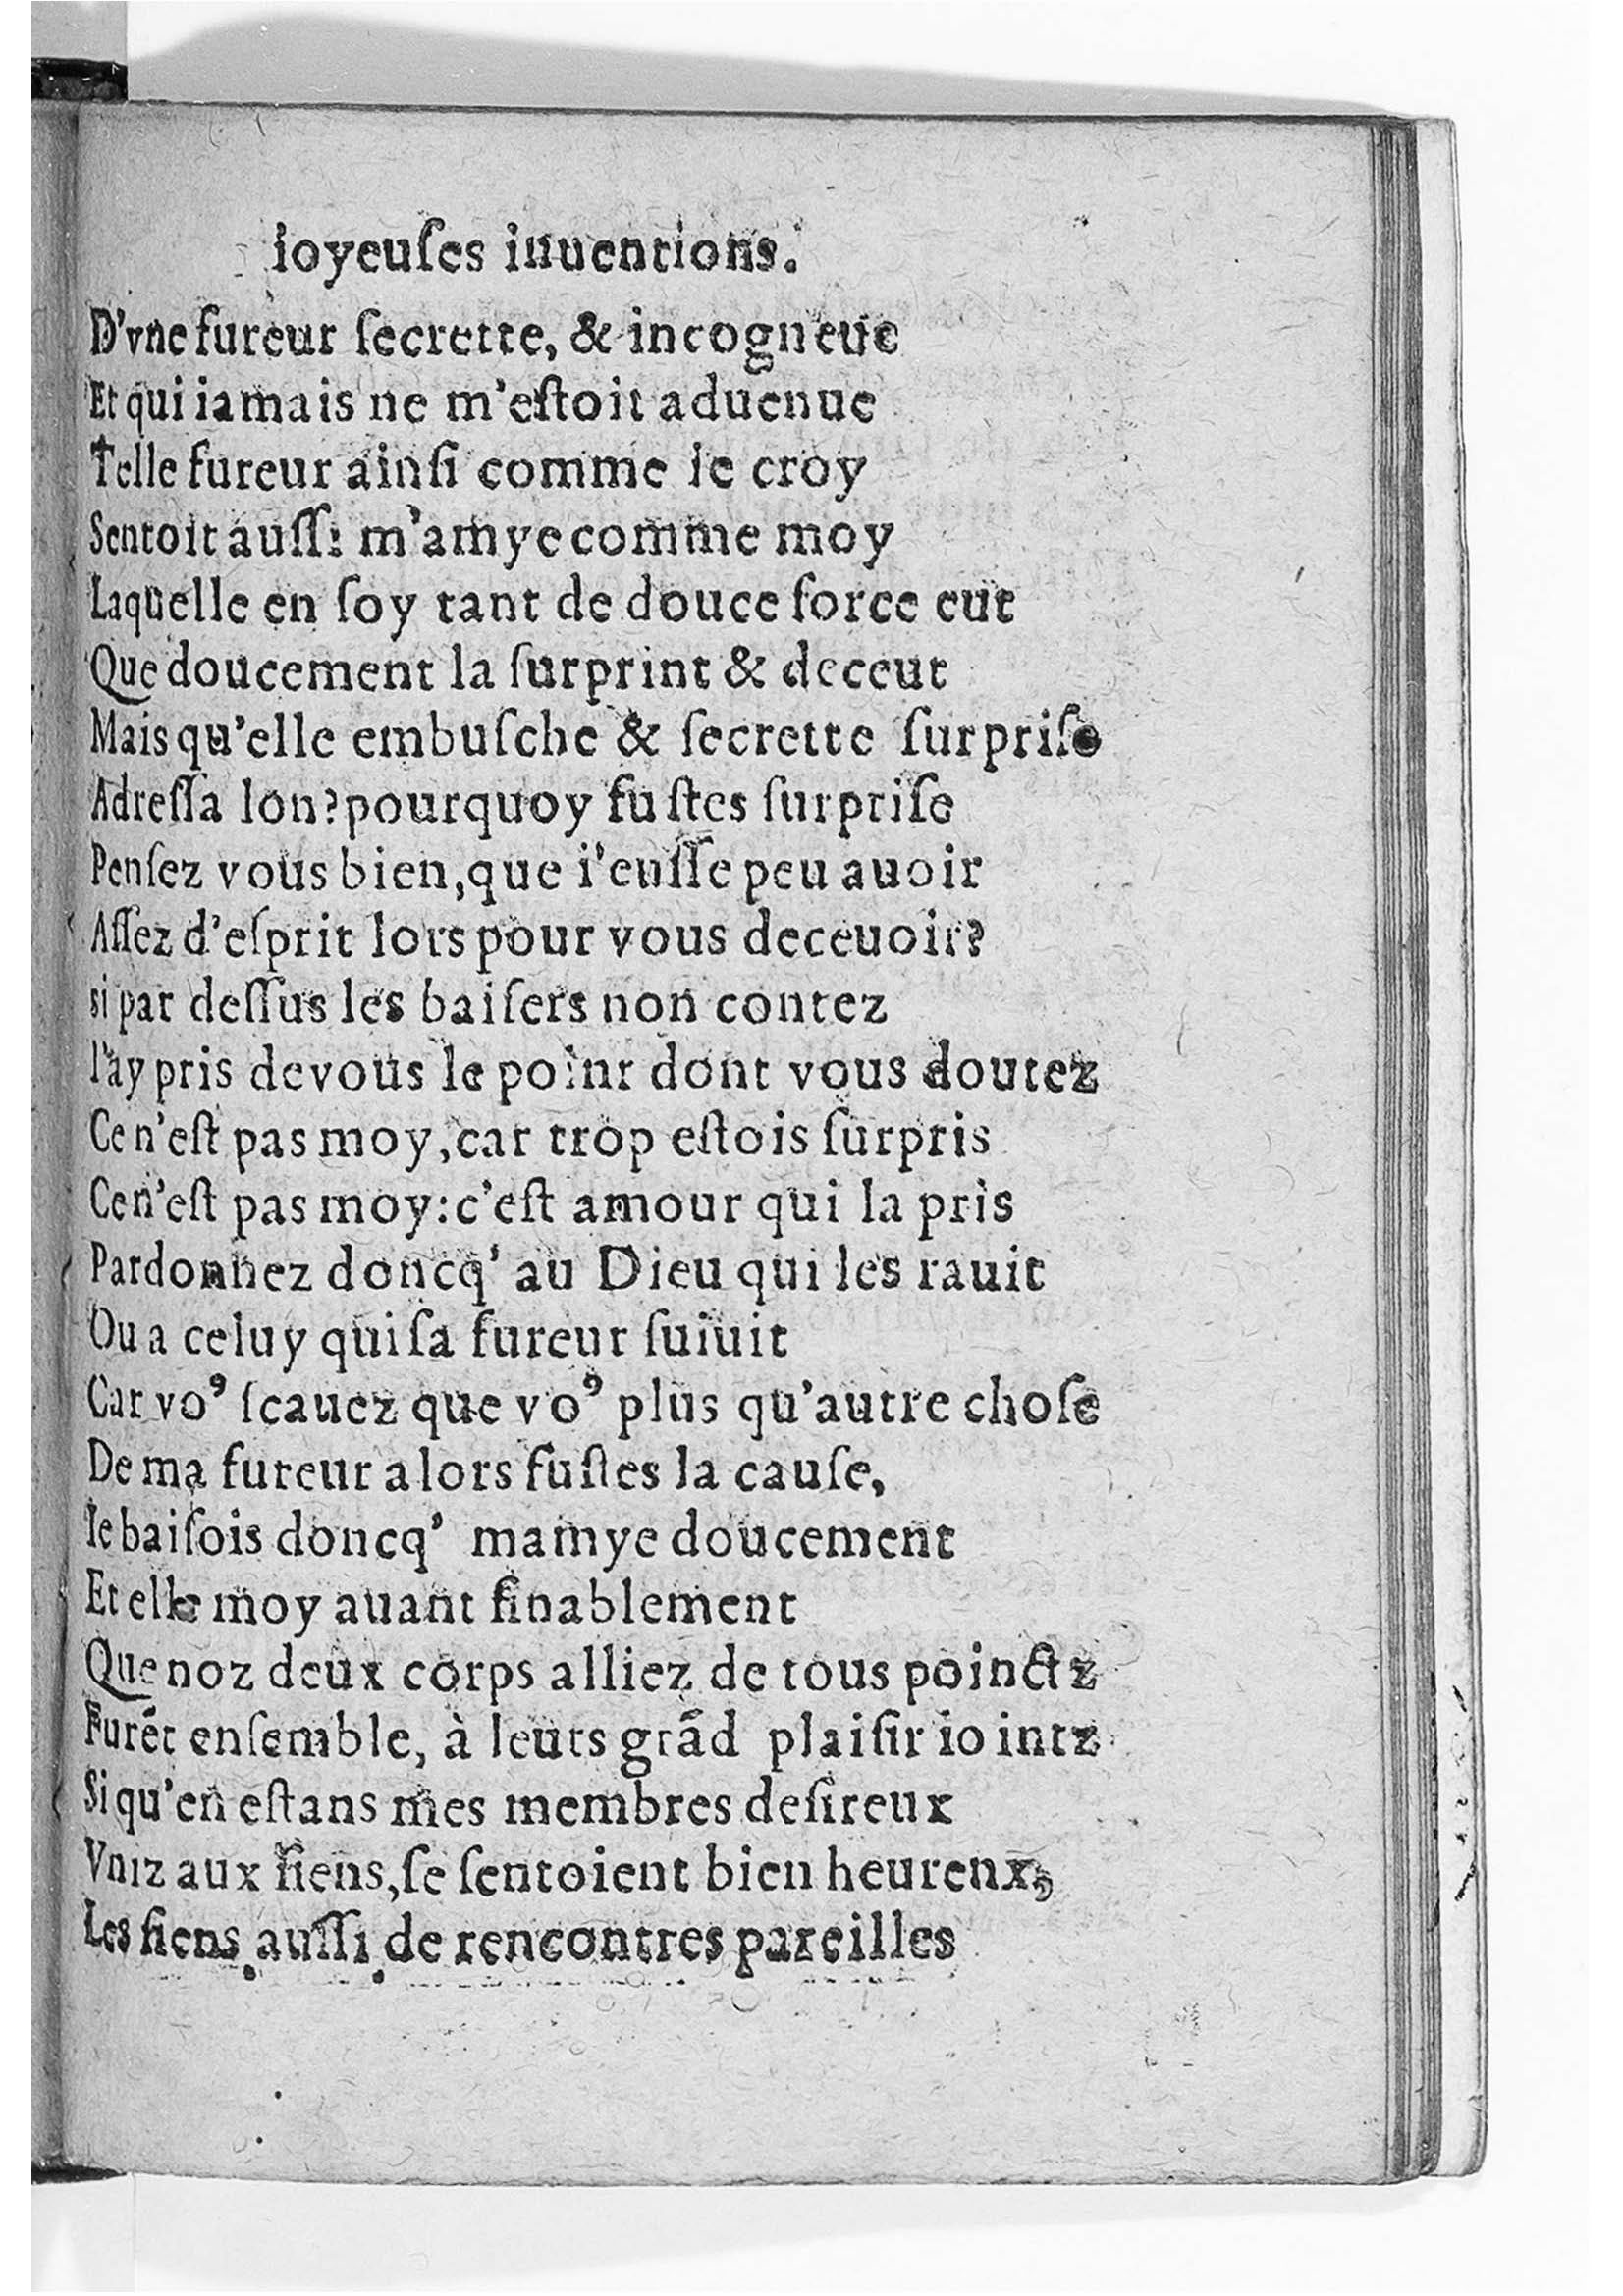 ioyeuſes inuentions.
D'vne fureur ſecrette, & incogneue
Et qui iamais ne m'eſtoit aduenue
Telle fureur ainſi comme ie croy
Sentoit auſſi m'amye comme moy
Laquelle en ſoy tant de douce force eut
Que doucement la ſurprint & deceut
Mais qu'elle embuſche & ſecrette ſurpriſe
Adreſſa lon? pourquoy fuſtes ſurpriſe
Penſez vous bien, que i'euſſe peu auoir
Aſſez d'eſprit lors pour vous deceuoir?
si par deſſus les baiſers non contez
I'ay pris de vous le point dont vous doutez
Ce n'eſt pas moy, car trop eſtois ſurpris
Ce n'eſt pas moy: c'eſt amour qui la pris
Pardonnez doncq' au Dieu qui les rauit
Ou a celuy qui ſa fureur ſuiuit
Car voꝰ ſcauez que voꝰ plus qu'autre choſe
De ma fureur alors fuſtes la cauſe,
Ie baiſois doncq' mamye doucement
Et elle moy auant finablement
Que noz deux corps alliez de tous poinctz
Furēt enſemble, à leurs grãd plaiſir iointz
Si qu'en eſtans mes membres deſireux
Vniz aux ſiens, ſe ſentoient bien heurenx,
Les ſiens auſſi de rencontres pareilles